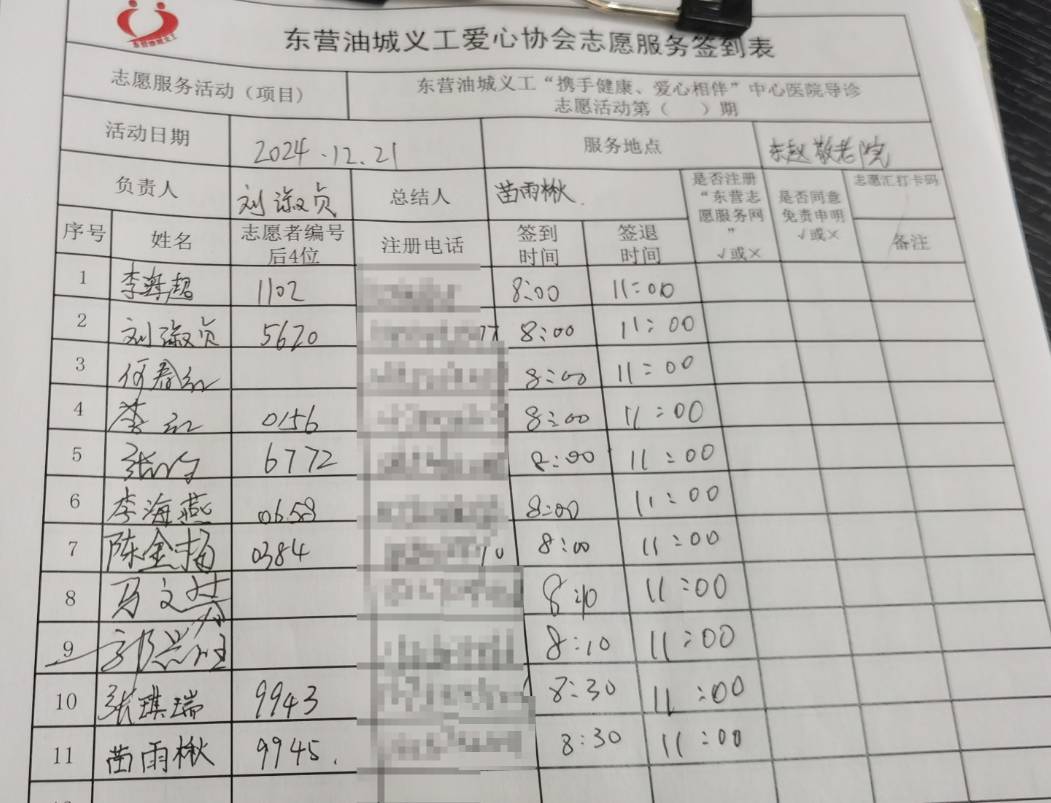 东营油城义工爱心协会志愿服务签到表
志愿服务活动（项目） 东营油城义工“携手健康、爱心相伴”中心医院导诊
志愿活动第（ ）期
活动日期 2024.12.21 服务地点 东赵敬老院
负责人 刘淑贞 总结人 苗雨楸 是否注册“东营志愿服务网” √或× 是否同意免责申明 √或× 志愿汇打卡码
序号 姓名 志愿者编号后4位 注册电话 签到时间 签退时间 备注
1 1102 8:00 11:00
2 刘淑贞 5620 8:00 11:00
3 何春红 8:00 11:00
4 李红 0156 8:00 11:00
5 6772 8:00 11:00
6 李海燕 0658 8:00 11:00
7 陈金扬 0384 8:00 11:00
8 11:00
9 8:10 11:00
10 张琪瑞 9943 8:30 11:00
11 苗雨楸 9945. 8:30 11:00